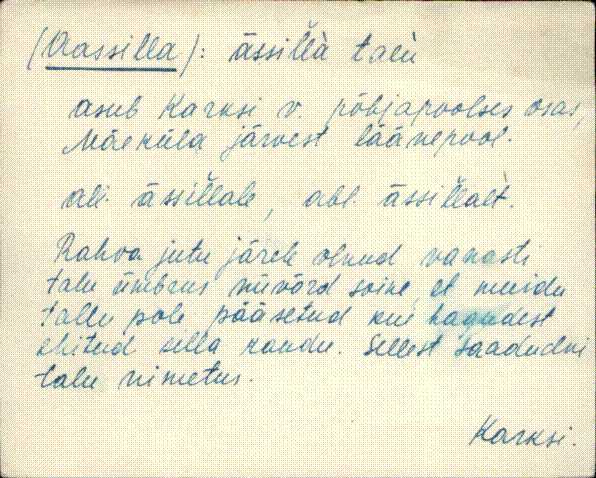 (Aassilla): ässiĺlà talù
asub Karksi v. põhjapoolses osas,
Mäeküla järvest läänepool.
all. ässiĺlale, abl. ässiĺlalt.
Rahva jutu järele olnud vanasti
talu ümbrus nüvõrd soine, et muidu
tallu pole pääsetud kui hagudest
ehitud silla kaudu. Sellest saadudki
talu nimetus.
Karksi.